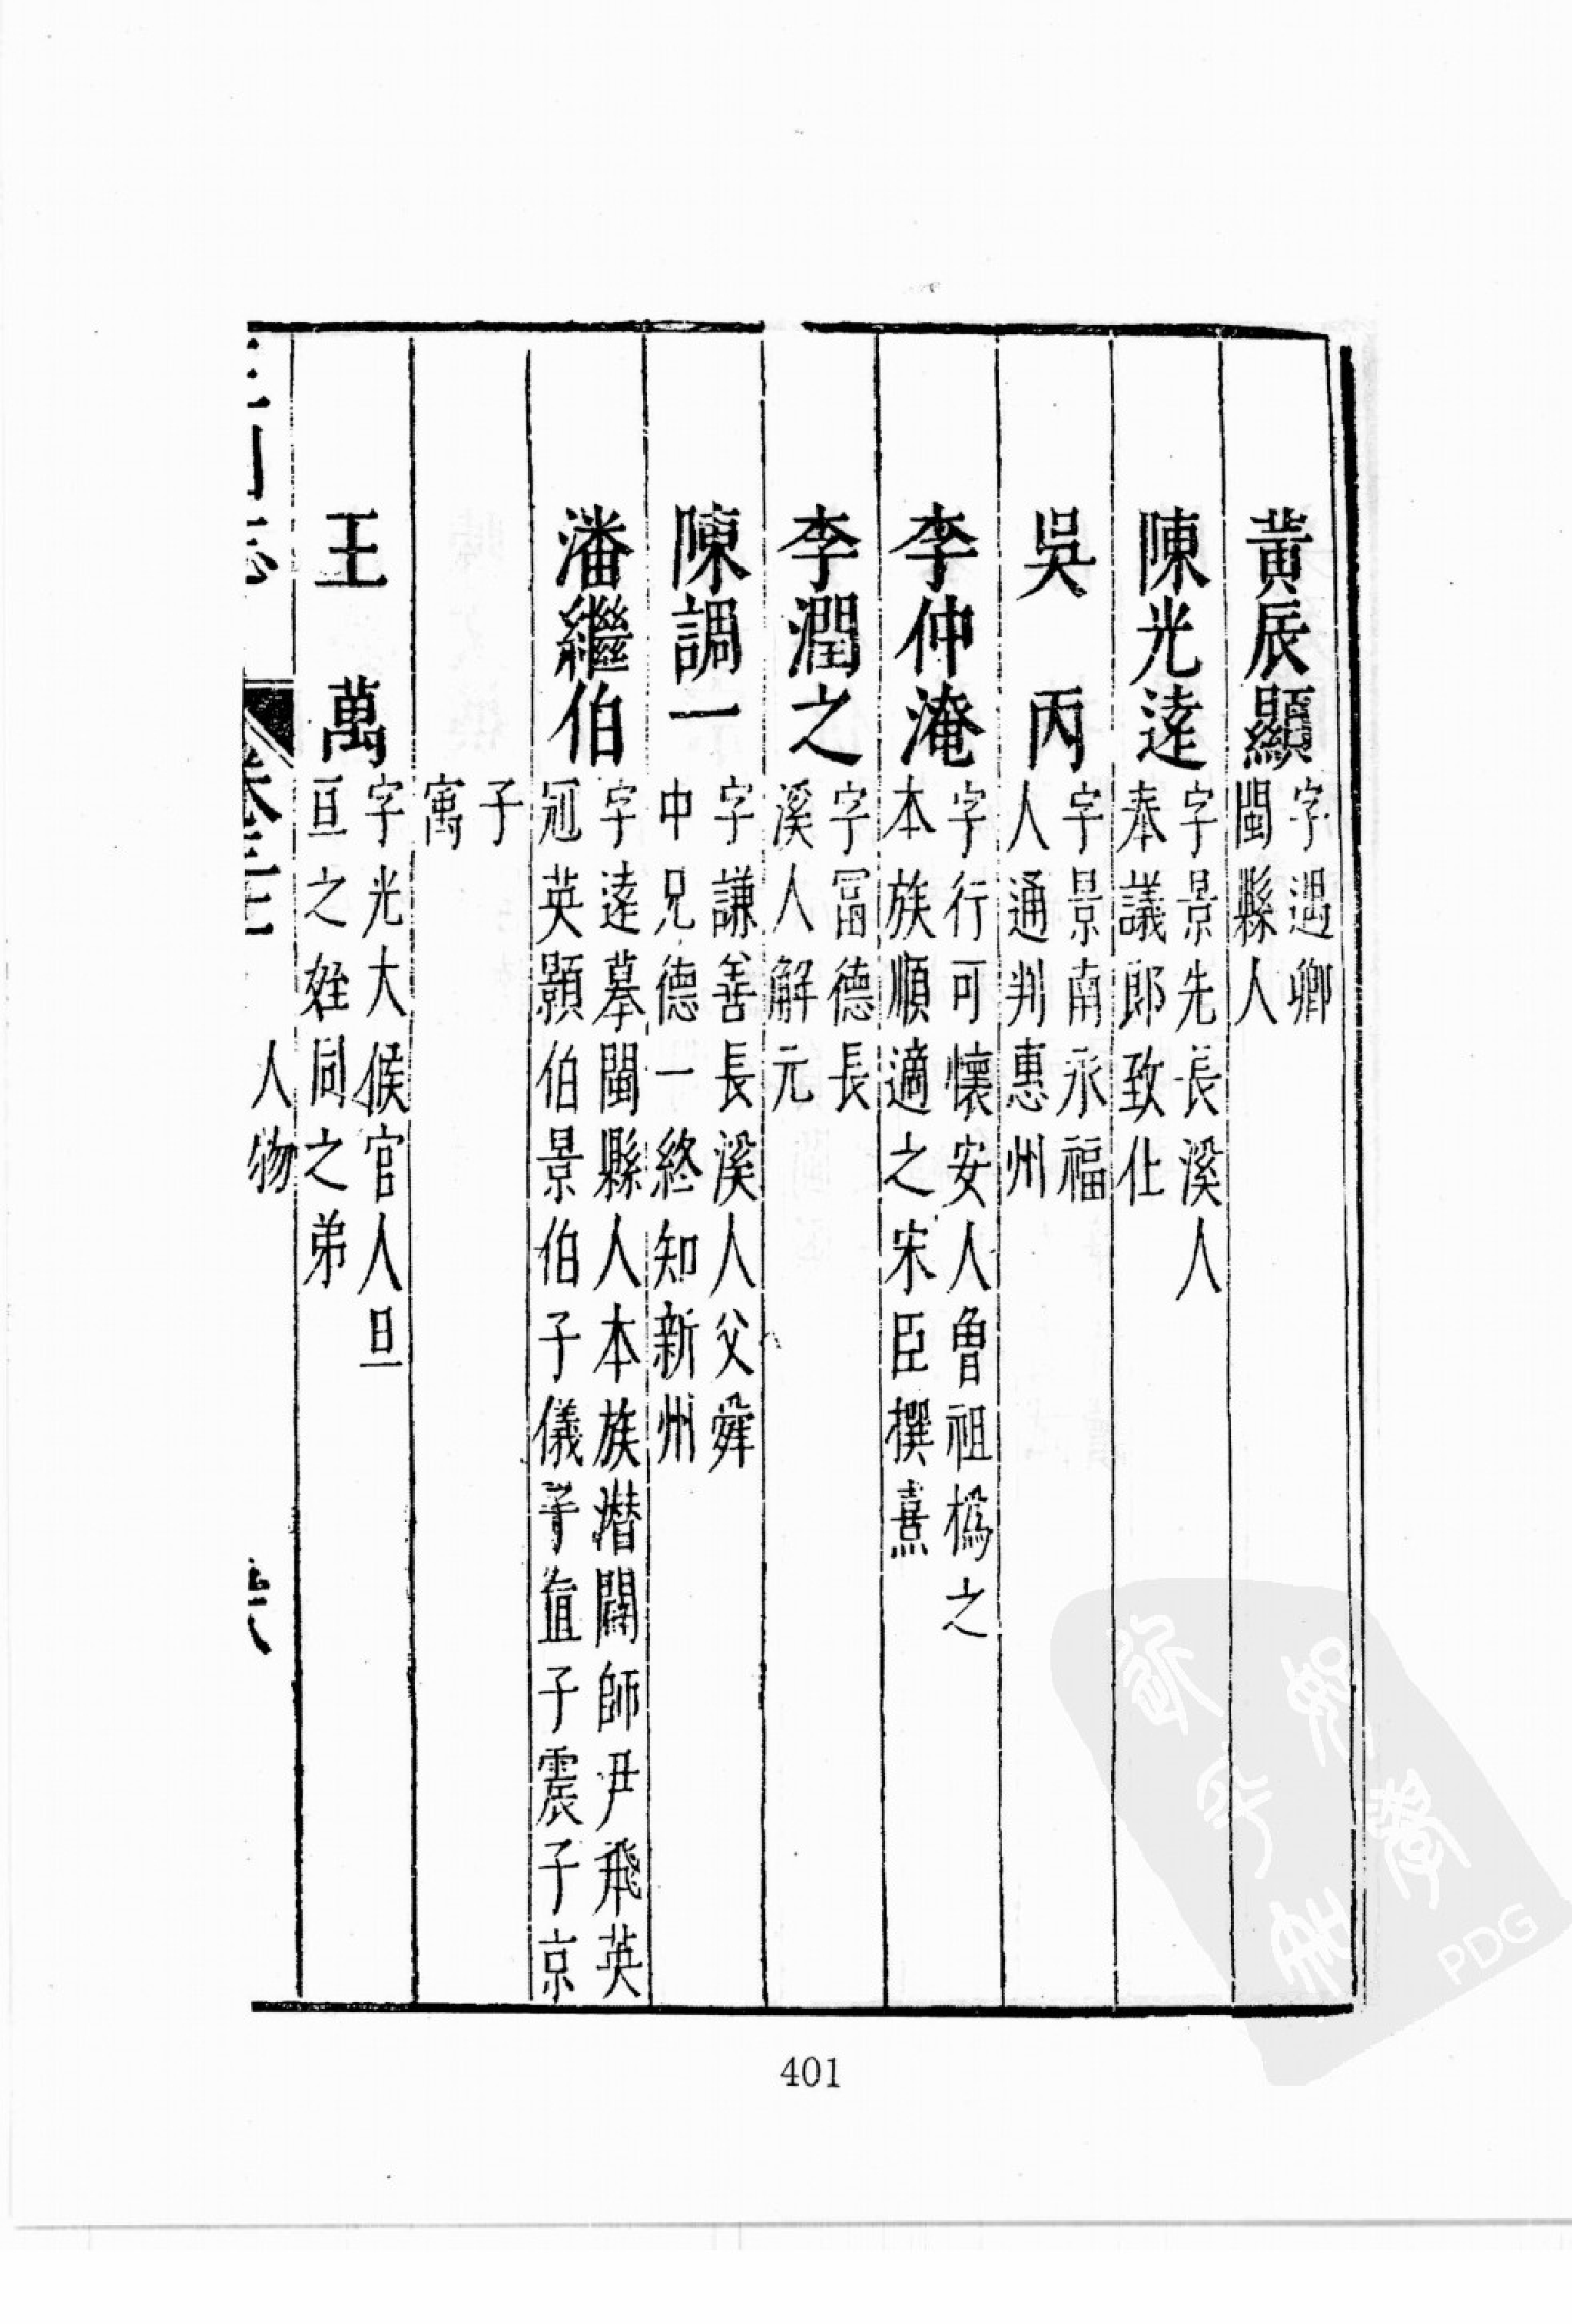 黃辰顯 字遇卿
閩縣人
陳光逺 字景先長溪人
奉議郎致仕
吳 丙 字景南永福
人通判惠州
李仲淹 字行可懷安人曾祖撝之
本族順適之宋臣撰熹
李潤之 字冨德長
溪人解元
陳調一 字謙善長溪人父舜
中兄德一終知新州
潘繼伯 字逺摹閩縣人本族潜闢師尹飛英
冠英顥伯景伯子儀子直子震子京
子
寓
王 萬 字光大候官人旦
亘之姪同之弟
志 卷三十二 人物
401
PDG